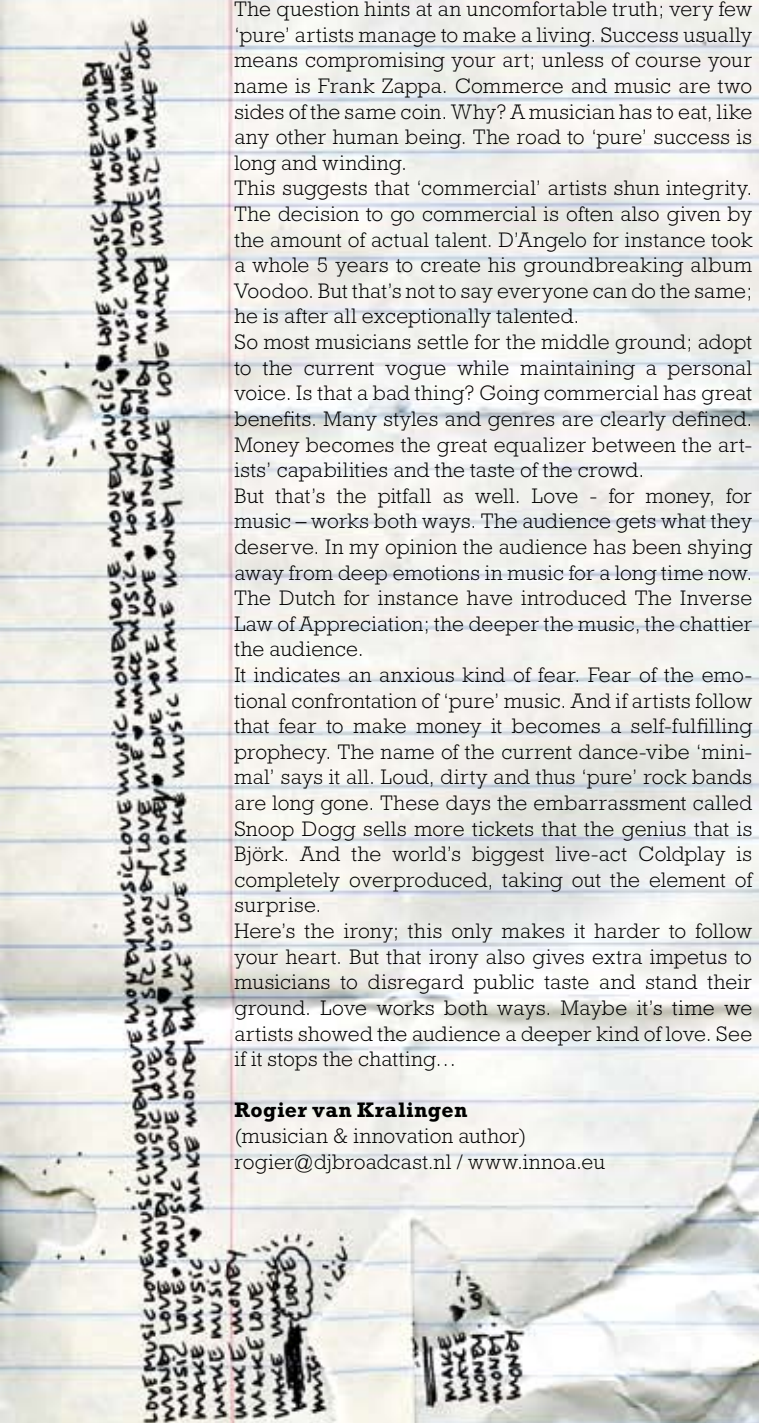 The question hints at an uncomfortable truth; very few
'pure' artists manage to make a living. Success usually
means compromising your art; unless of course your
name is Frank Zappa. Commerce and music are two
sides of the same coin. Why? A musician has to eat, like
any other human being. The road to 'pure' success is
long and winding.
This suggests that 'commercial' artists shun integrity.
The decision to go commercial is often also given by
the amount of actual talent. D'Angelo for instance took
a whole 5 years to create his groundbreaking album
Voodoo. But that's not to say everyone can do the same;
he is after all exceptionally talented.
So most musicians settle for the middle ground; adopt
to the current vogue while maintaining a personal
voice. Is that a bad thing? Going commercial has great
benefits. Many styles and genres are clearly defined.
Money becomes the great equalizer between the art-
ists' capabilities and the taste of the crowd.
But that's the pitfall as well. Love - for money, for
music – works both ways. The audience gets what they
deserve. In my opinion the audience has been shying
away from deep emotions in music for a long time now.
The Dutch for instance have introduced The Inverse
Law of Appreciation; the deeper the music, the chattier
the audience.
It indicates an anxious kind of fear. Fear of the emo-
tional confrontation of 'pure' music. And if artists follow
that fear to make money it becomes a self-fulfilling
prophecy. The name of the current dance-vibe 'mini-
mal' says it all. Loud, dirty and thus 'pure' rock bands
are long gone. These days the embarrassment called
Snoop Dogg sells more tickets that the genius that is
Björk. And the world's biggest live-act Coldplay is
completely overproduced, taking out the element of
surprise.
Here's the irony; this only makes it harder to follow
your heart. But that irony also gives extra impetus to
musicians to disregard public taste and stand their
ground. Love works both ways. Maybe it's time we
artists showed the audience a deeper kind of love. See
if it stops the chatting…
Rogier van Kralingen
(musician & innovation author)
rogier@djbroadcast.nl / www.innoa.eu
LOVEMUSICLOVEMUSICMONEYLOVEMONEYMUSICLOVEMUSICMONEYLOVE MONEYMUSIC ♥ LOVE MUSIC MAKE MONEY
MONEY LOVE MONEY MUSIC LOVE MUSIC MONEY LOVE ME ♥ MAKE MUSIC ♥ LOVE MONEY ♥ MUSIC MONEY LOVE LOVE
MUSIC LOVE ♥ MUSIC LOVE MONEY ♥ MUSIC MONEY ♥ LOVE LOVE LOVE ♥ MONEY MONEY MONEY LOVE ME ♥ MUSIC
MAKE MUSIC ♥ MAKE MONEY MAKE LOVE MAKE MUSIC MAKE MONEY MAKE LOVE MAKE MUSIC MAKE LOVE
MAKE MUSIC
MAKE MONEY
MAKE LOVE
MAKE MUSIC
LOVE
MAKE
MAKE ♥
MONEY
MONEY
MONEY